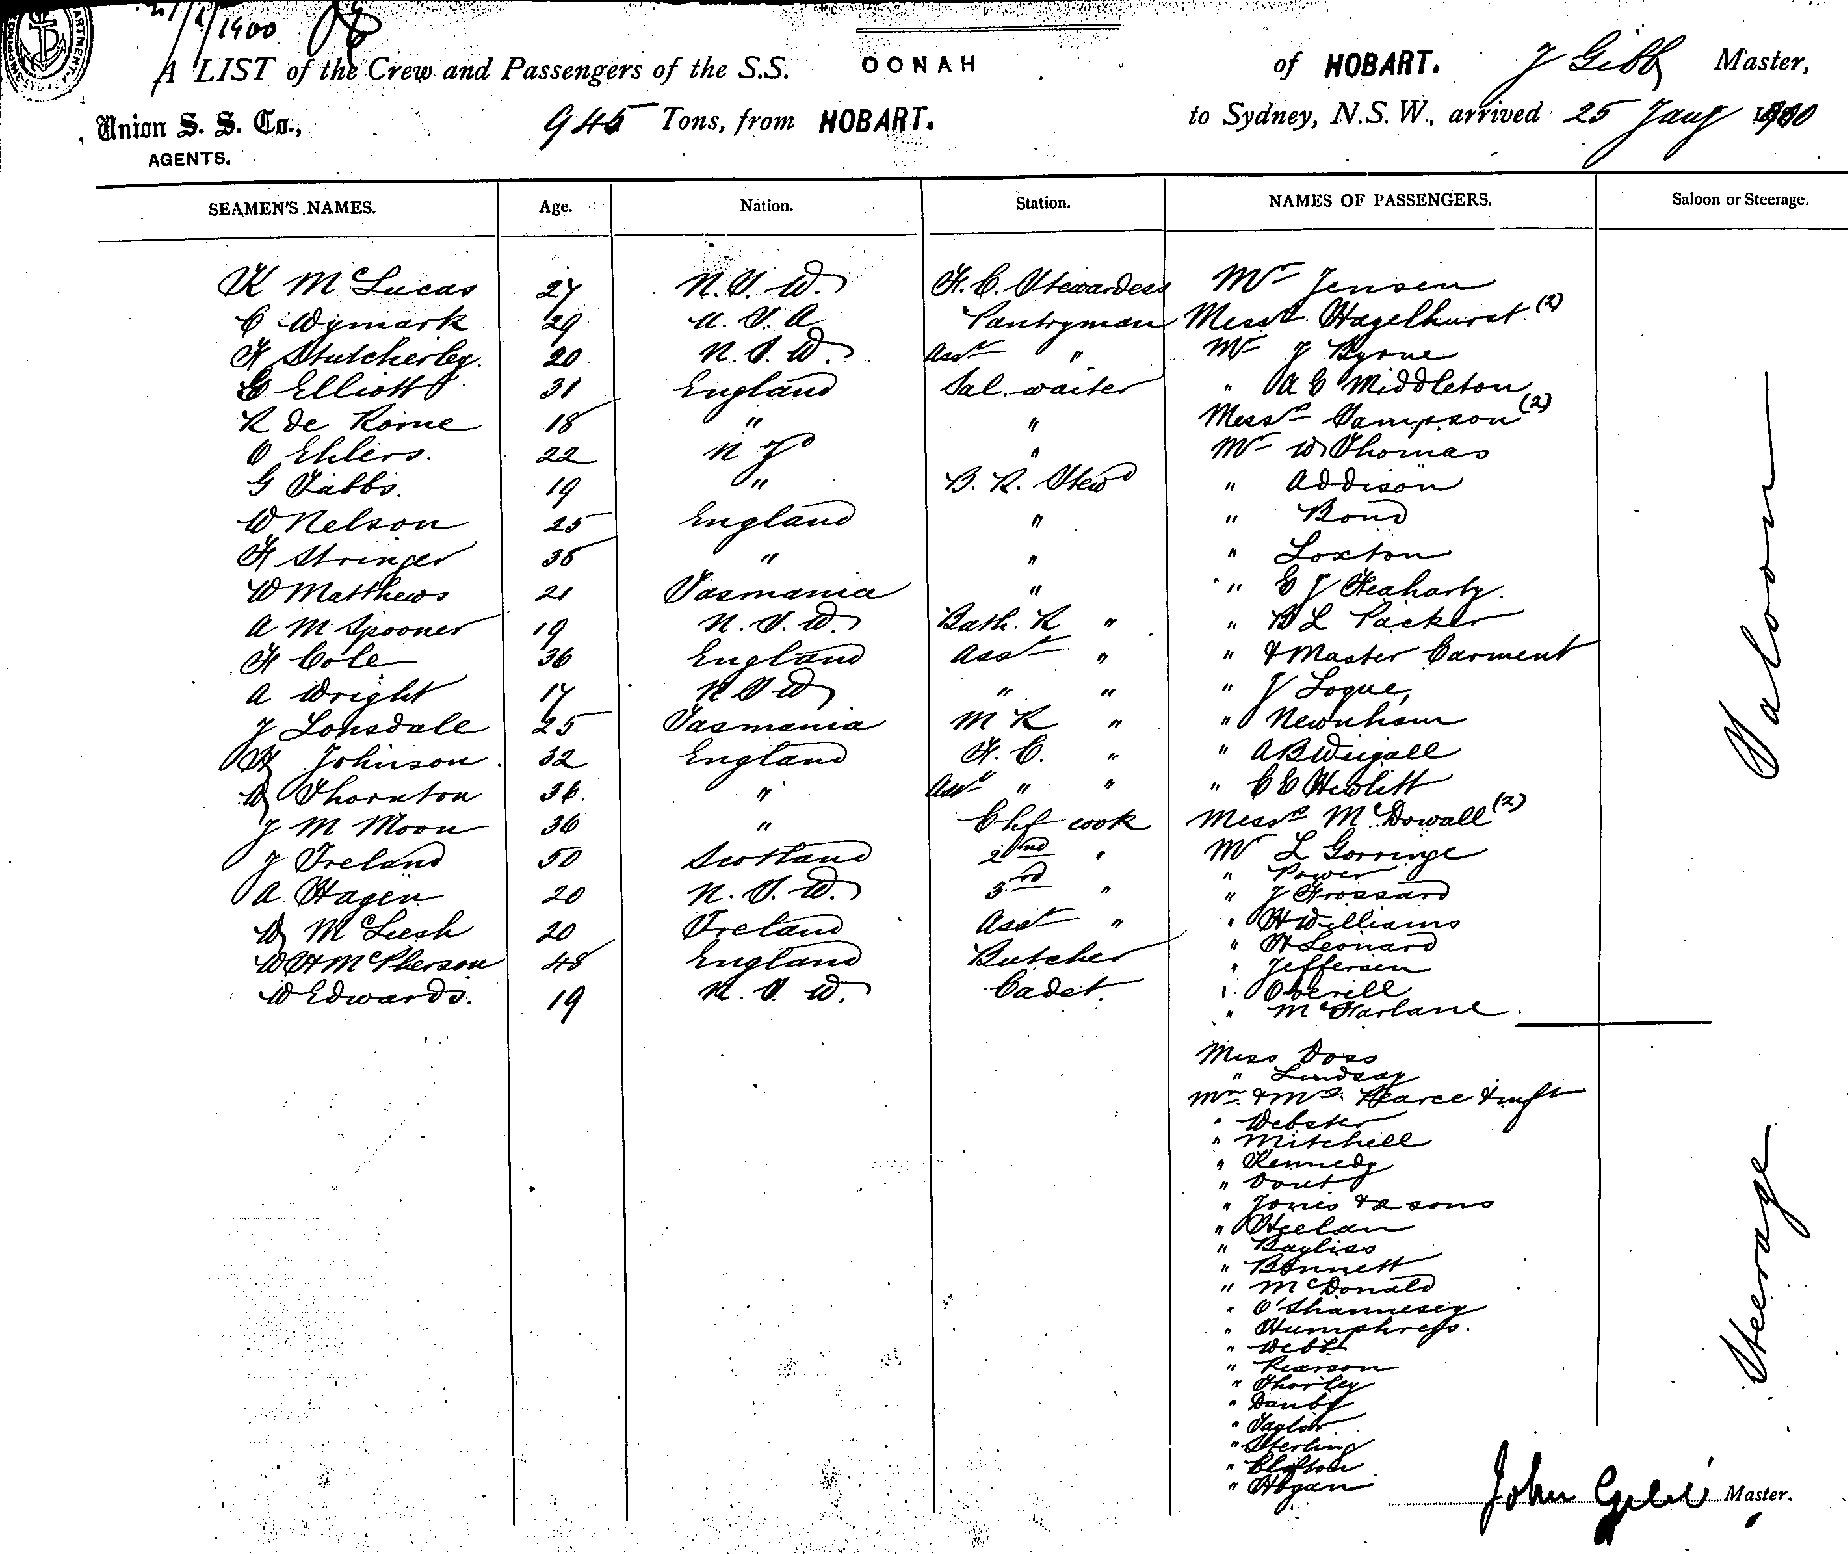 1900
A LIST of the Crew and Passengers of the S.S. OONAH of HOBART. J Gibb Master,
Union S. S. Co., AGENTS. 945 Tons, from HOBART. to Sydney, N.S.W., arrived 25 Jany 1900
SEAMEN'S NAMES. Age. Nation. Station. NAMES OF PASSENGERS. Saloon or Steerage.
K McLucas 27 N.S.W. F.C. Stewardess Mr Jensen
C Wymark 29 U.S.A Pantryman Messrs Hazelhurst (2)
F Stutcherley. 20 N.S.W. Asst " Mr J Byrne
G Elliott 31 England Sal. waiter " A C Middleton
R de Rome 18 " " Messrs Sampson (2)
O Ehlers. 22 N Z " Mr W Thomas
G Tabbs. 19 " B. R. Stewd " Addison
W Nelson 25 England " " Bond
F Stringer 35 " " " Loxton
W Matthews 21 Tasmania " " E J Feaharty.
A M Spooner 19 N.S.W. Bath. R " " B L Packer
F Cole 36 England Asst " " & Master Carment
A Wright 17 N S W " " " J Logue,
J Lonsdale 25 Tasmania M R " " Newnham
H Johnson. 32 England F.C. " " A B Weigall
W Thornton 36. " Asst " " " C E Hewlitt
J M Moon 36 " Chf cook Messrs McDowall (2)
J Ireland 50 Scotland 2nd " Mr L Gorringe
" Power
A. Hagen 20 N.S.W. 3rd " " J Frossard
W McLeesh 20 Ireland Asst " " H Williams
" H Leonard
W H McPherson 48 England Butcher " Jeffersen
W Edwards. 19 N.S.W. Cadet. " Overill
" McFarlane
Saloon
Miss Doss
" Lindsay
Mr & Mrs Pearce & inft
" Webster
" Mitchell
" Kennedy
" Dout
" Jones & 2 sons
" Heelan
" Bayliss
" Bennett
" McDonald
" O'Shannesey
" Humphreys.
" Webb
" Pearson
" Thorley
" Danby
" Taylor
" Sterling
" Clifton
" Hogan
Steerage
John Gibb Master.